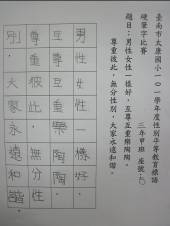 臺南市太康國小一０一學年度性別平等教育標語
硬筆字比賽
三年甲班 座號：
題目：男性女性一樣好，互尊互重樂陶陶。
尊重彼此，無分性別，大家永遠和諧。
男性女性一樣好，
互尊互重樂陶陶。
尊重彼此，無分性
別，大家永遠和諧。